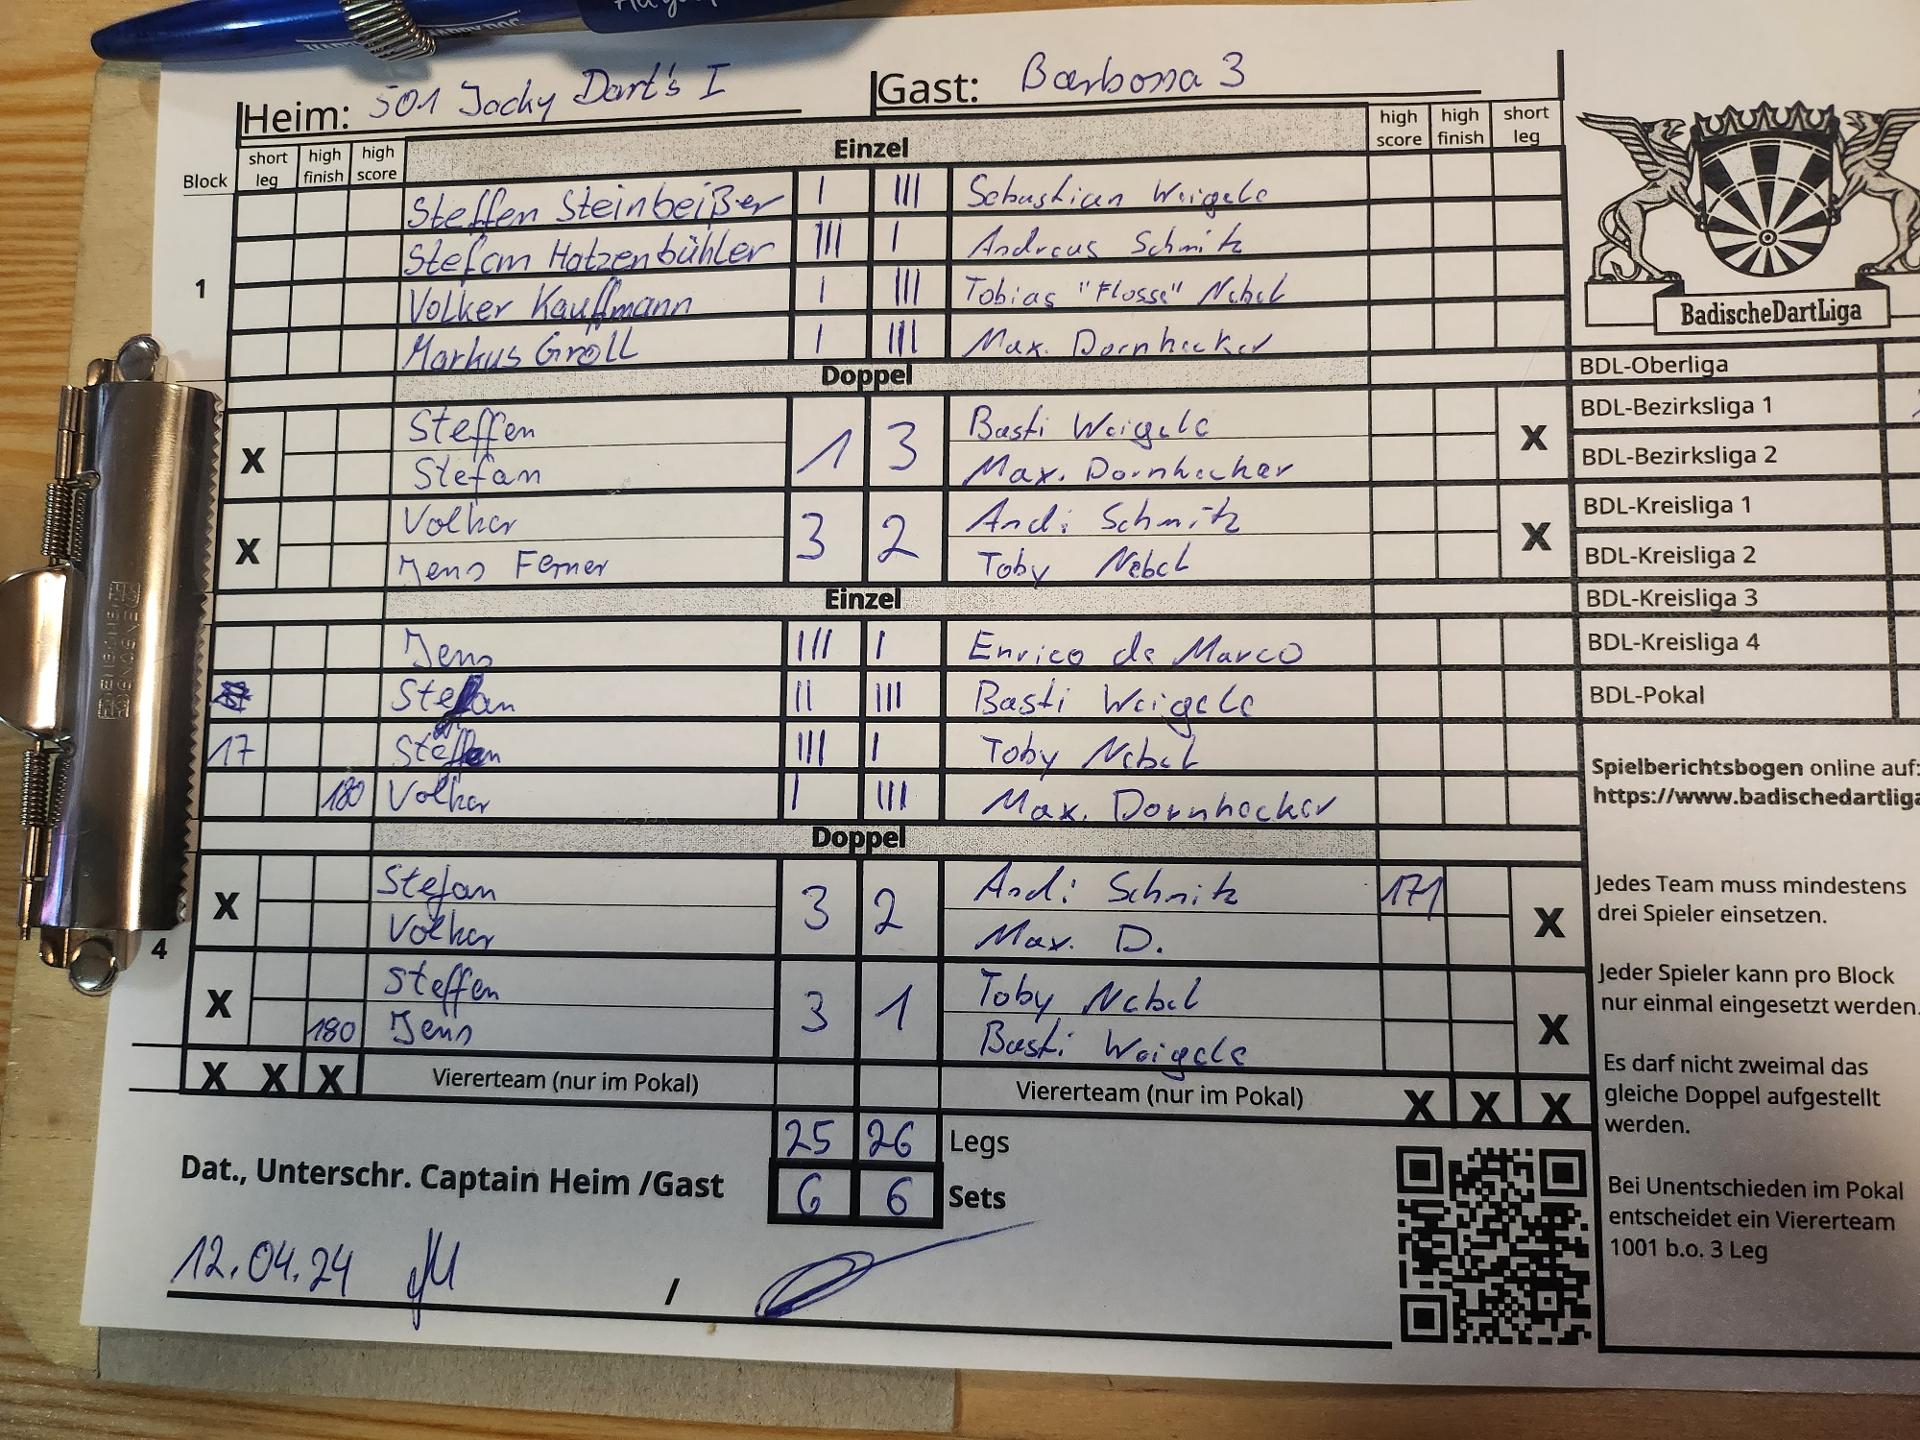 Heim: 501 Jacky Dart's I Gast: Barbossa 3
Block short leg high finish high score Einzel high score high finish short leg
Steffen Steinbeißer I III Sebastian Weigele
Stefan Hatzenbühler III I Andreas Schmitz
1 Volker Kauffmann I III Tobias "Flosse" Nebel
Markus Groll I III Max. Dornhecker
Doppel
X Steffen 1 3 Basti Weigele X
Stefan Max. Dornhecker
X Volker 3 2 Andi Schmitz X
Jens Ferner Toby Nebel
Einzel
Jens III I Enrico de Marco
Stefan II III Basti Weigele
17 Steffen III I Toby Nebel
180 Volker I III Max. Dornhecker
Doppel
X Stefan 3 2 Andi Schmitz 171 X
4 Volker Max. D.
X Steffen 3 1 Toby Nebel X
180 Jens Basti Weigele
X X X Viererteam (nur im Pokal) Viererteam (nur im Pokal) X X X
25 26 Legs
Dat., Unterschr. Captain Heim /Gast 6 6 Sets
12.04.24 /
BadischeDartLiga
BDL-Oberliga
BDL-Bezirksliga 1
BDL-Bezirksliga 2
BDL-Kreisliga 1
BDL-Kreisliga 2
BDL-Kreisliga 3
BDL-Kreisliga 4
BDL-Pokal
Spielberichtsbogen online auf:
https://www.badischedartliga
Jedes Team muss mindestens
drei Spieler einsetzen.
Jeder Spieler kann pro Block
nur einmal eingesetzt werden.
Es darf nicht zweimal das
gleiche Doppel aufgestellt
werden.
Bei Unentschieden im Pokal
entscheidet ein Viererteam
1001 b.o. 3 Leg